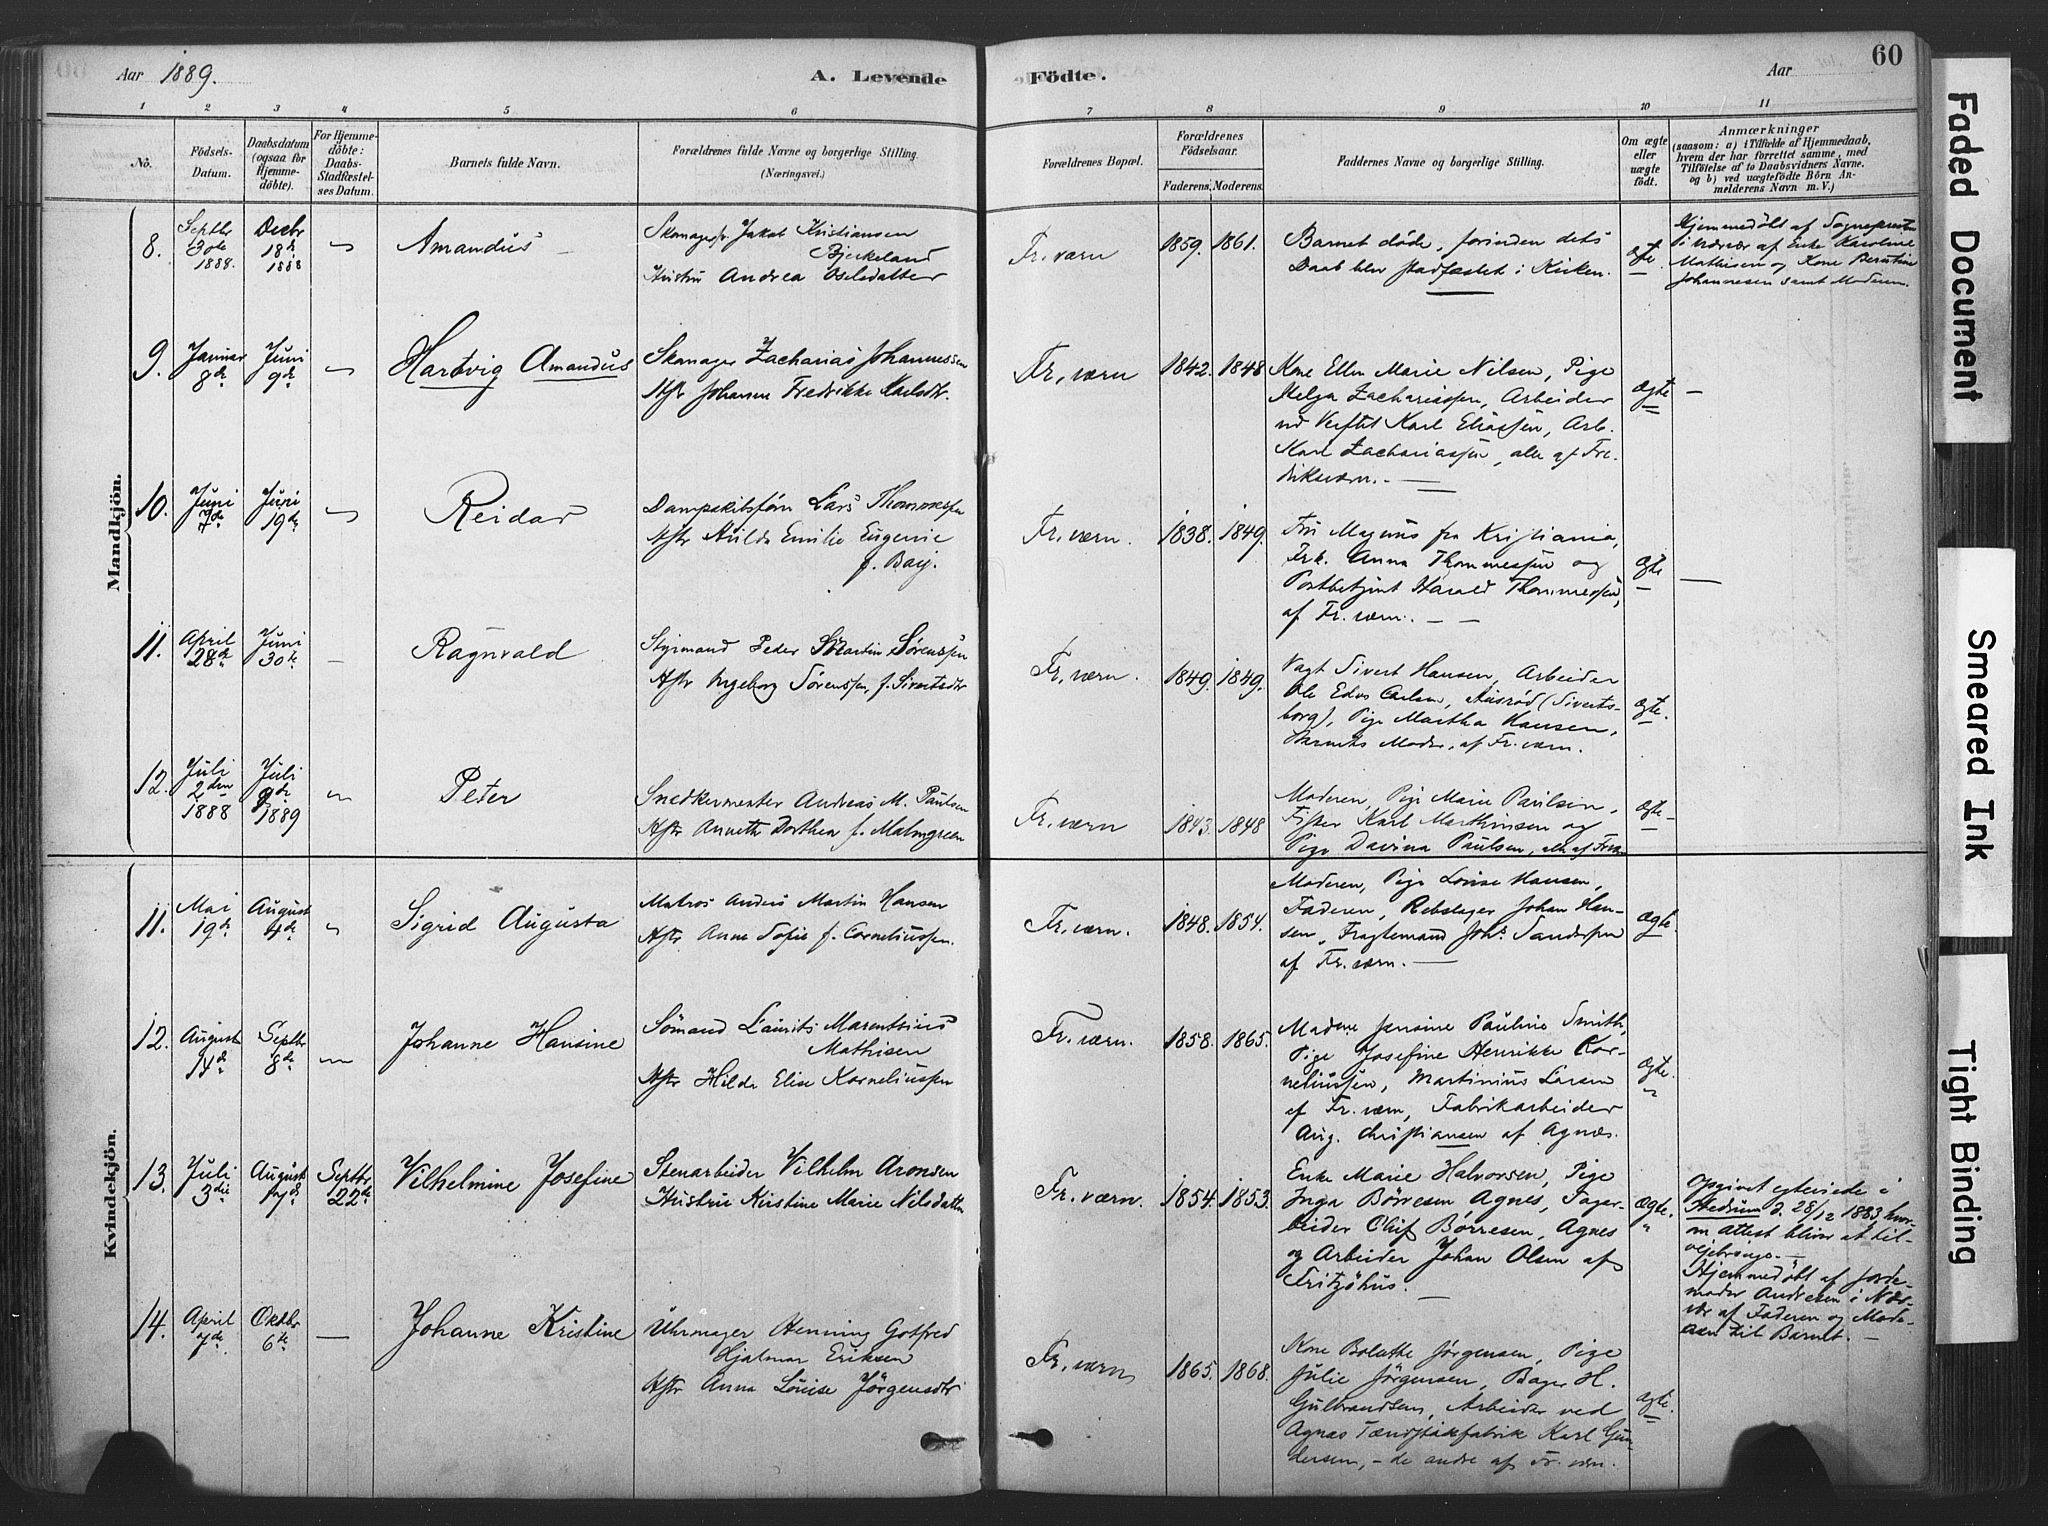 Aar 1889.
A. Levende Födte.
Aar
60
1 2 3 4 5 6 7 8 9 10 11
No.
Födsels-
Datum.
Daabsdatum
(ogsaa for
Hjemme-
döbte).
For Hjemme-
döbte:
Daabs-
Stadfæstel-
ses Datum.
Barnets fulde Navn.
Forældrenes fulde Navne og borgerlige Stilling.
(Næringsvei.)
Forældrenes Bopæl.
Forældrenes
Födselsaar.
Faderens. Moderens.
Faddernes Navne og borgerlige Stilling.
Om ægte
eller
uægte
födt.
Anmærkninger
(saasom: a) i Tilfælde af Hjemmedaab,
hvem der har forrettet samme, med
Tilföielse af to Daabsvidners Navne.
og b) ved uægtefödte Börn An-
melderens Navn m. V.)
Mandkjön.
8.
Septbr
30te
1888.
Decbr
18de
1888
Amandus
Jakob Kristiansen
Bjerkeland
Hustru Andrea Oslsdatter
Fr. værn
1859. 1861.
Barnet döde, forinden dets
Daab blev stadfæstet i Kirken.
ægte.
Hjemmedöbt af Sognepresten
i Nærvær af Enke Karoline
Mathisen og Kone Berntine
Johannesen samt Moderen.
9.
Januar
8de
Juni
9de
Hartvig Amandus
Skomager Zacharias Johannessen
Hstr Johanne Fredrikke Karlsdtr.
Fr. værn
1842. 1848
Kone Ellen Marie Nilsen, Pige
Helga Zachariassen, Arbeider
ved Verftet Karl Eliassen, Arb.
Karl Zachariassen, alle af Fre-
driksværn. -
ægte
10.
Juni
7de
Juni
19de
Reidar
Dampskibsförer Lars Thommessen
Hstr Hulda Emilie Eugenie
f. Bay.
Fr. værn.
1838. 1849.
Fru Magnus fra Kristiania,
Frk. Anna Thommessen og
Postbetjent Harald Thommessen,
af Fr. værn.
ægte
11.
April
28de
Juni
30te
Ragnvald
Styrmand Peder Martin Sörenssen
Hstr Ingeborg Sörenssen, f. Sivertsdtr
Fr. værn.
1849. 1849.
Vagt Sivert Hansen, Arbeider
Ole Edvs Carlsen, (Siverts-
borg), Pige Martha Hansen,
Barnets Moder, af Fr. værn.
ægte.
12.
Juli
2den
1888
Juli
9de
1889
Peter
Snedkermester Andreas M. Paulsen
Hstr Annette Dorthea f. Malmgreen
Fr. værn
1843. 1848
Moderen, Pige Marie Paulsen,
Fisker Karl Marthinsen og
Pige Davina Paulsen, alle af Frv.
ægte.
Kvindekjön.
11.
Mai
19de
August
4de
Sigrid Augusta
Matros Anders Martin Hansen
Hstr Anne Sofie f. Corneliussen.
Fr. værn.
1848. 1854.
Moderen, Pige Lovise Hansen,
Faderen, Rebslager Johan Han-
sen, Fragtemand Johs Sanderssen
af Fr. værn.
ægte.
12.
August
14de
Septbr
8de
Johanne Hansine
Sömand Laurits Marentsius
Mathisen
Hstr Hilda Elise Korneliussen
Fr. værn.
1858. 1865.
Madame Jensine Pauline Smith,
Pige Josefine Henrikke Kor-
neliussen, Martinius Larsen
af Fr. værn, Fabrikarbeider
Aug. Christiansen af Agnæs.
ægte.
13.
Juli
3die
August
7de
Septbr
22de
Vilhelmine Josefine
Stenarbeider Vilhelm Aronsen
Hustru Kristine Marie Nilsdatter
Fr. værn.
1854. 1853.
Enke Marie Halvorsen, Pige
Inga Börresen Agnes, Sagar-
beider Oluf Börresen, Agnes
og Arbeider Johan Olsen af
Fritzöhus.
ægte.
Opgivet egteviede i
Hedrum d. 28/12 1883 hvor-
om attest bliver at til-
veiebringe.
Hjemmedöbt af Jorde-
moder Andresen i Nær-
vær af Faderen og Mode-
ren til Barnet.
14.
April
7de
Oktbr
6te
Johanne Kristine
Uhrmager Henning Gotfred
Hjalmar Eriksen
Hstr Anna Louise Jörgensdtr
Fr. værn
1865. 1868.
Kone Bolette Jörgensen, Pige
Julie Jörgensen, Bager H.
Gulbrandsen, Arbeider ved
Agnæs Tændstikfabrik Karl Gun-
dersen, - de andre af Fr. værn.
ægte.
Faded Document
Smeared Ink
Tight Binding